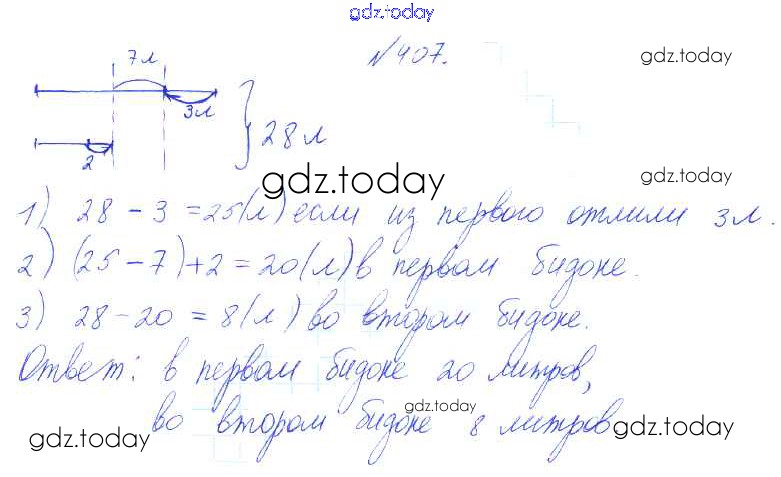 gdz.today
№407.
gdz.today
7л
3л
28 л
2
gdz.today
gdz.today
1) 28 - 3 = 25(л) если из первого отлили 3л.
2) (25 - 7) + 2 = 20(л) в первом бидоне.
3) 28 - 20 = 8(л) во втором бидоне.
Ответ: в первом бидоне 20 литров,
gdz.today
во втором бидоне 8 литров
gdz.today
gdz.today